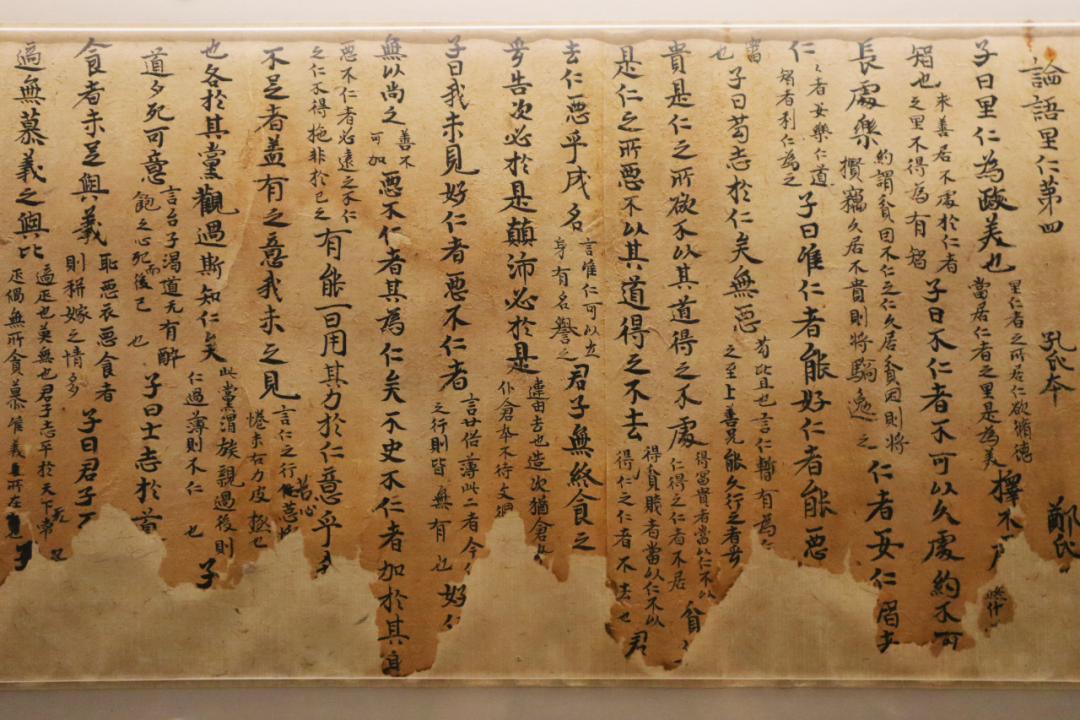 論語里仁第四 孔氏本 鄭氏
子曰里仁為美也 里仁者之所居仁欲猶德當居仁者之里是為美 擇不
智也 求善居不處於仁者之里不得為有智 子曰不仁者不可以久處約不可
長處樂 約謂貧困不仁之仁久居貧困則將攢竊久居不貴則將驕逸之 仁者安仁
仁仁者安樂仁道智者利仁為之 子曰唯仁者能好仁者能惡
也子曰苟志於仁矣無惡 苟比且也言仁暫有為之至上善見能久行之者
貴是仁之所欲不以其道得之不處 得冨貴者當以仁不以仁得之仁者不居 貧
是仁之所惡不以其道得之不去 得貧賤者當以仁不以得仁之仁者不去也 君
去仁惡乎成名 言唯仁可以立身有名譽之 君子無終食之
告次必於是顛沛必於是 違由去也造次猶倉仆倉卒不待文
子曰我未見好仁者惡不仁者 言世俗薄此二者今之行則皆無有也 好仁
無以尚之 善不可加 惡不仁者其為仁矣不史不仁者加於其身
惡不仁者必遠之不仁之仁不得施非於己之 有能一日用其力於仁意乎
不足者盖有之意我未之見 言仁之行惓未右力皮極也
也各於其黨觀過斯知仁矣 此黨謂族親過後則仁過薄則不仁也 子
道夕死可意 言台子渴道无有醉飽之心死而後已也 子曰士志於
食者未足與義 恥惡衣惡食者則耕嫁之情多 子曰君子
適無慕義之與比 適匹也莫無也君子志平於天下常匹偈無所貪慕唯義所在 子